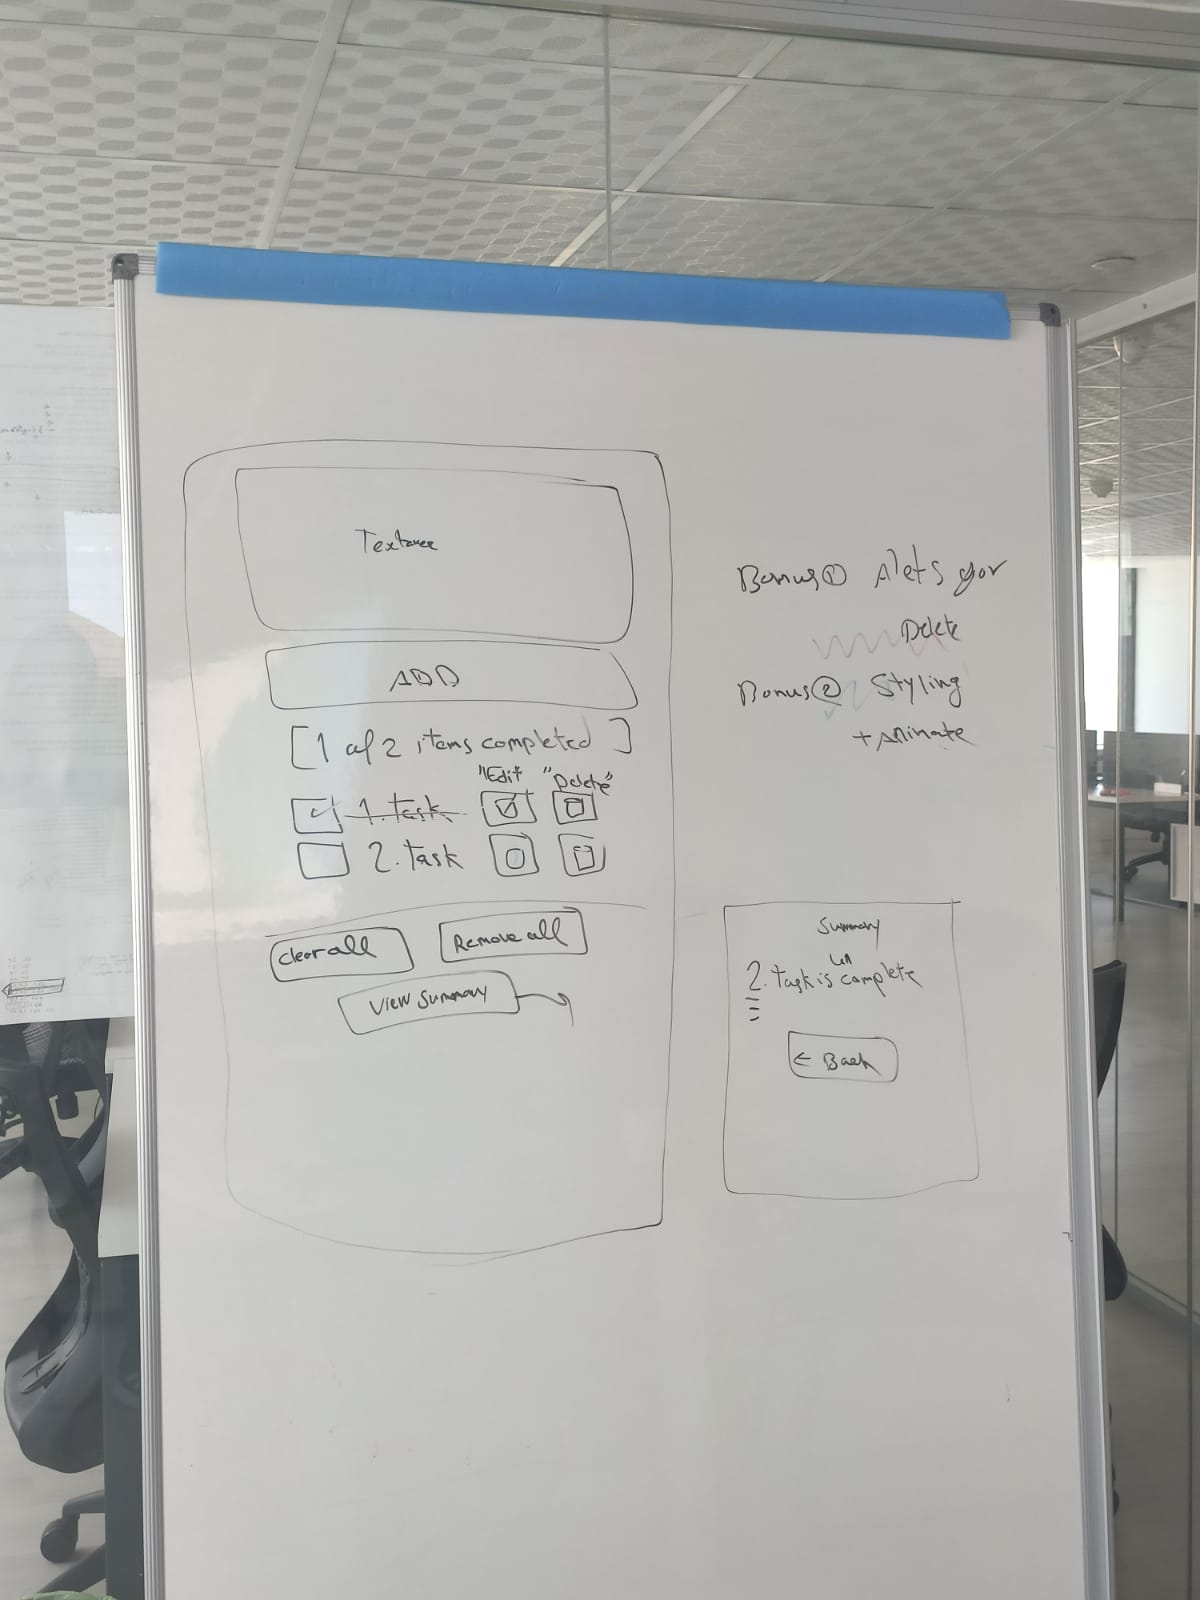 Textarea
ADD
[1 of 2 items completed]
"Edit" "Delete"
1. task
2. task
Clear all
Remove all
View Summary
Bonus① Alets for
Delete
Bonus② Styling
+ Animate
Summary
un
2. task is complete
← Back